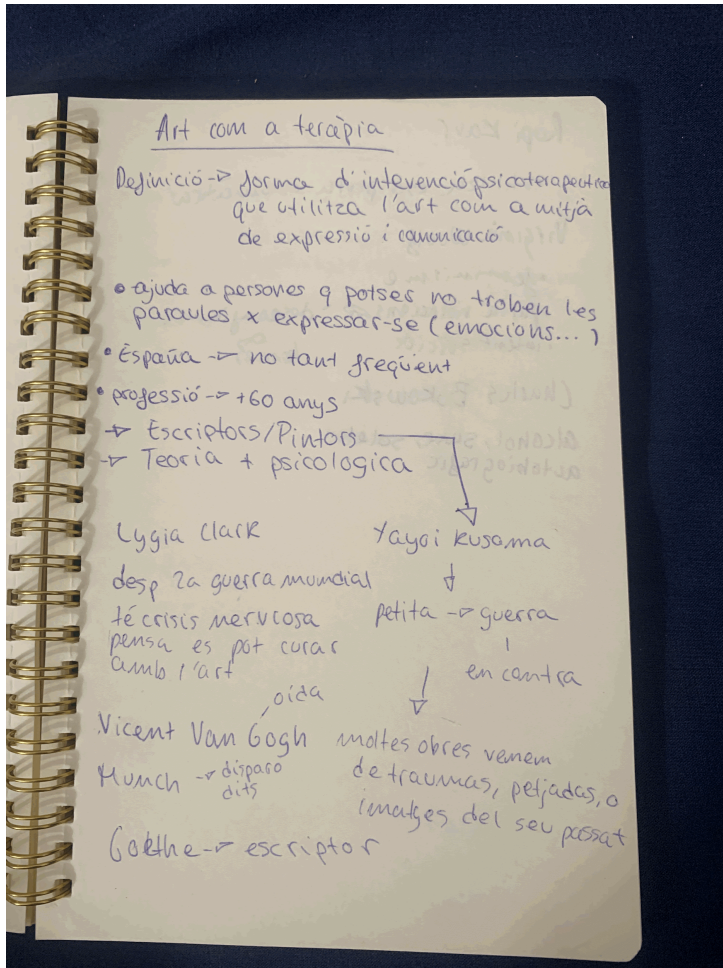 Art com a teràpia
Definició -> forma d'intevenció psicoterapeutica
que utilitza l'art com a mitjà
de expressió i comunicació
• ajuda a persones q potses no troben les
paraules x expressar-se (emocions...)
• España -> no tant freqüent
• professió -> +60 anys
-> Escriptors/Pintors
-> Teoria + psicologica
Lygia Clark
desp 2a guerra mundial
té crisis nerviosa
pensa es pot curar
amb l'art
Yayoi Kusama
petita -> guerra
en contra
moltes obres venem
de traumas, petjadas, o
imatges del seu passat
oida
Vicent Van Gogh
Munch -> disparo
dits
Goethe -> escriptor